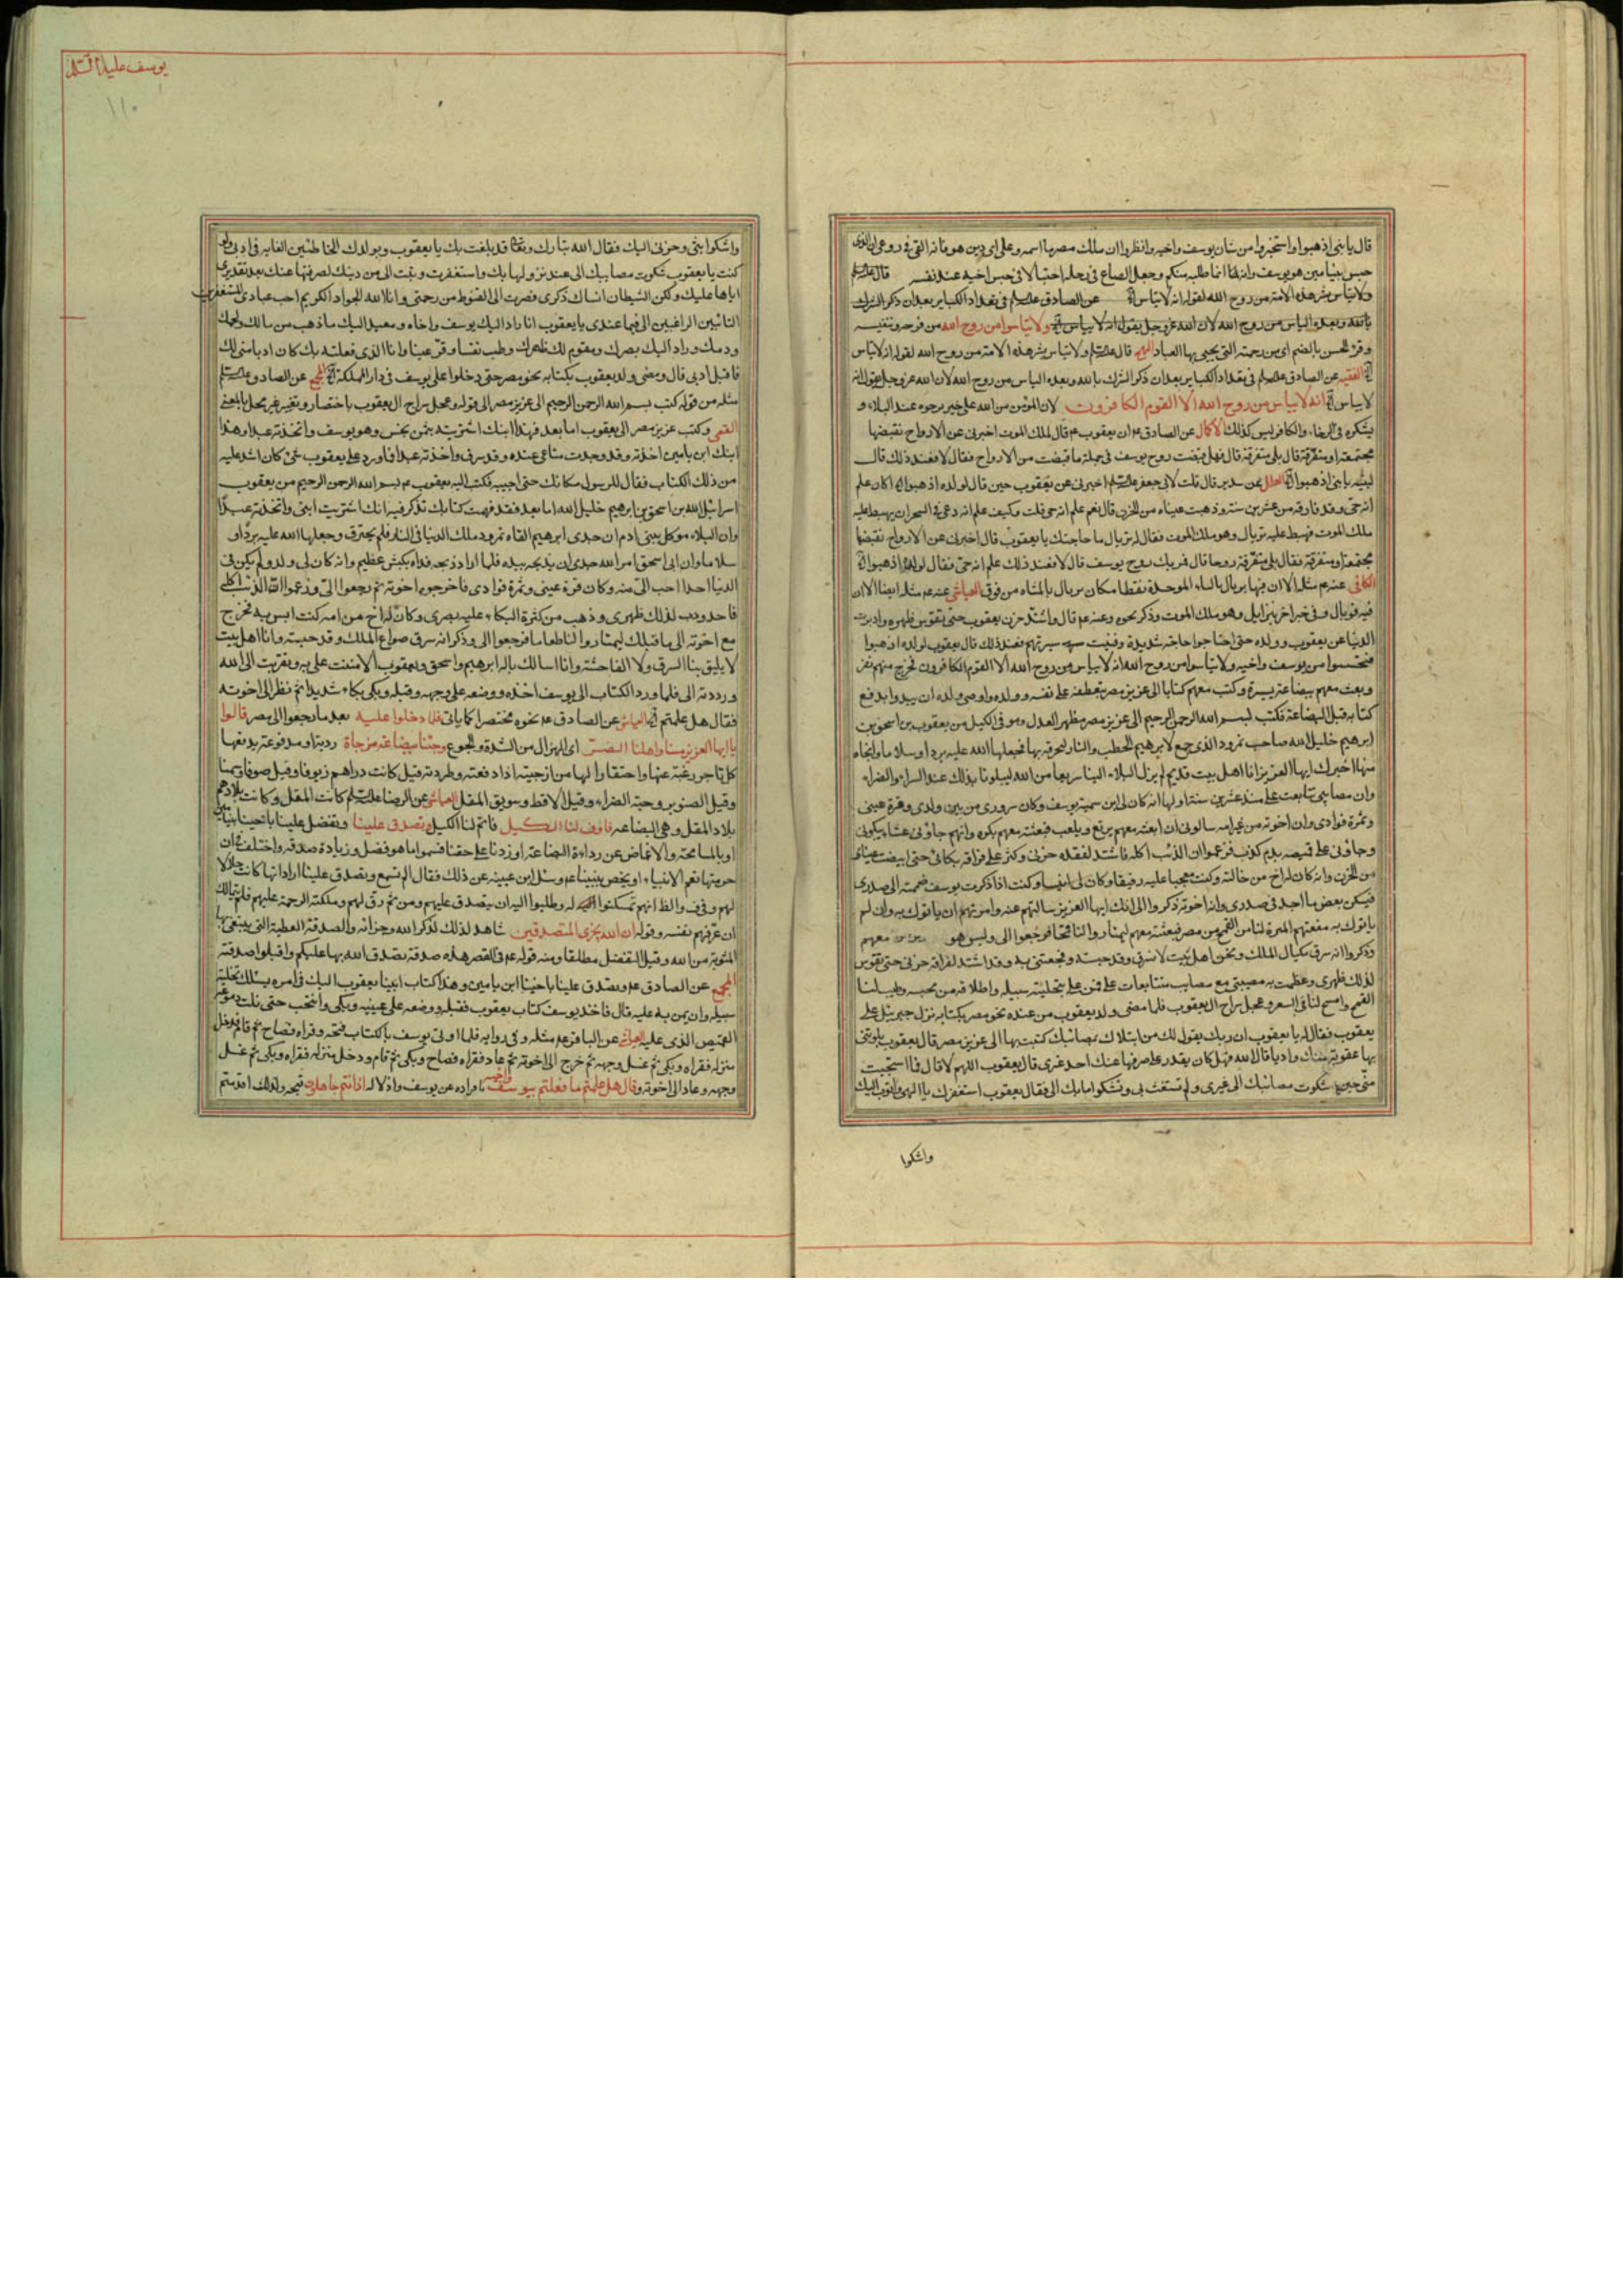 قال يا بنى اذهبوا واستخبروا من شان يوسف واخيه وانظروا ان ملك مصر ما اسمه وعلى اى دين هو فانه القى فى روعى ان الذى
حبس بنيامين هو يوسف وانه انما طلبه منكم وجعل الصاع فى رحله احتيالا فى حبس اخيه عند نفسه قال
ولا تياس بشر هذه الامة من روح الله لقوله انه لا يياس عن الصادق فى تعداد الكباير بعد ان ذكر الشرك
بالله وبعده الياس من روح الله لان الله عز وجل يقول انه لا يياس ولا تياسوا من روح الله من فرجه وتنفيسه
وقرء الحسن بالضم اى من رحمته التى يحيى بها العباد قال ولا تياس بشر هذه الامة من روح الله لقوله انه لا يياس
الفقيه عن الصادق فى تعداد الكباير بعد ان ذكر الشرك بالله وبعده الياس من روح الله لان الله عز وجل يقول انه
لا يياس انه لا يياس من روح الله الا القوم الكافرون لان المؤمن من الله على خير يرجوه عند البلاء و
يشكره فى الرخاء والكافر ليس كذلك الاكمال عن الصادق ع ان يعقوب ع قال لملك الموت اخبرنى عن الارواح تقبضها
مجتمعة او متفرقة قال بلى متفرقة قال فهل قبضت روح يوسف فى جملة ما قبضت من الارواح فقال لا فعند ذلك قال
لبنيه يا بنى اذهبوا العلل عن سدير قال قلت لابى جعفر اخبرنى عن يعقوب حين قال لولده اذهبوا اكان علم
انه حى وقد فارقه من عشرين سنة وذهبت عيناه من الحزن قال نعم علم انه حى قلت وكيف علم انه دعى فى السحر ان يهبط عليه
ملك الموت فهبط عليه تربال وهو ملك الموت فقال له تربال ما حاجتك يا يعقوب قال اخبرنى عن الارواح تقبضها
مجتمعة او متفرقة فقال بلى متفرقة روحا قال فمر بك روح يوسف قال لا فعند ذلك علم انه حى فقال لولده اذهبوا
الكافى عنه ع مثله الا ان فيها بريال بالباء الموحدة نقطا مكان تربال بالمثناه من فوق العياشى عنه ع مثله ايضا الا ان
فيه قوبال وفى خبر اخر بنزايل وهو ملك الموت وذكر نحوه وعنه ع قال واشتد حزن يعقوب حتى تقوس ظهره وادبرت
الدنيا عن يعقوب وولده حتى احتاجوا حاجة شديدة وفنيت ميرتهم فعند ذلك قال يعقوب لولده اذهبوا
فتحسسوا من يوسف واخيه ولا تياسوا من روح الله انه لا يياس من روح الله الا القوم الكافرون فخرج منهم نفر
وبعث معهم بضاعة يسيرة وكتب معهم كتابا الى عزيز مصر يتعطفه على نفسه وولده واوصى ولده ان يبدوا بدفع
كتابه قبل البضاعة فكتب بسم الله الرحمن الرحيم الى عزيز مصر ومظهر العدل وموفى الكيل من يعقوب بن اسحق بن
ابرهيم خليل الله صاحب نمرود الذى جمع لابرهيم الحطب والنار ليحرقه بها فجعلها الله عليه بردا وسلاما وانجاه
منها اخبرك ايها العزيز انا اهل بيت قديم لم يزل البلاء الينا سريعا من الله ليبلونا بذلك عند السراء والضراء
وان مصايبى تتابعت على منذ عشرين سنة اولها انه كان لى ابن سميته يوسف وكان سرورى من بين ولدى وقرة عينى
وثمرة فؤادى وان اخوته من غير امه سالونى ان ابعثه معهم يرتع ويلعب فبعثته معهم بكرة وانهم جاؤنى عشاء يبكون
وجاؤنى على قميصه بدم كذب فزعموا ان الذئب اكله فاشتد لفقده حزنى وكثر على فراقه بكائى حتى ابيضت عيناى
من الحزن وانه كان له اخ من خالته وكنت به معجبا وعليه رفيقا وكان لى انيسا وكنت اذا ذكرت يوسف ضممته الى صدرى
فيسكن بعض ما اجد فى صدرى وان اخوته ذكروا الى انك ايها العزيز سالتهم عنه وامرتهم ان ياتوك به وان لم
ياتوك به منعتهم الميرة لنا من القمح من مصر فبعثته معهم ليمتاروا لنا قمحا فرجعوا الى وليس هو معهم
وذكروا انه سرق مكيال الملك ونحن اهل بيت لا نسرق وقد حبسته وفجعتنى به وقد اشتد لفراقه حزنى حتى تقوس
لذلك ظهرى وعظمت به مصيبتى مع مصايب متتابعات على فمن على بتخلية سبيله واطلاقه من محبسه وطيب لنا
القمح واسمح لنا فى السعر وعجل سراح ال يعقوب فلما مضى ولد يعقوب من عنده نحو مصر بكتابه نزل جبرئيل على
يعقوب فقال له يا يعقوب ان ربك يقول لك من ابتلاك بمصائبك كتبت بها الى عزيز مصر قال يعقوب بلوتنى
بها عقوبة منك وادبا قال الله فهل كان يقدر على صرفها عنك احد غيرى قال يعقوب اللهم لا قال فما استحييت
منى حين شكوت مصائبك الى غيرى ولم تستغث بى وتشكو ما بك الى فقال يعقوب استغفرك يا الهى واتوب اليك
واشكوا
يوسف عليه السلام
١١٠
واشكوا بثى وحزنى اليك فقال الله تبارك وتعالى قد بلغت بك يا يعقوب وبولدك الخاطئين الغاية فى ادبى ولو
كنت يا يعقوب شكوت مصايبك الى عند نزولها بك واستغفرت وتبت الى من ذنبك لصرفتها عنك بعد تقديرى
اياها عليك ولكن الشيطان انساك ذكرى فصرت الى القنوط من رحمتى وانا الله الجواد الكريم احب عبادى المستغفرين
التائبين الراغبين الى فيما عندى يا يعقوب انا راد اليك يوسف واخاه ومعيد اليك ما ذهب من مالك ولحمك
ودمك وراد اليك بصرك ومقوم لك ظهرك وطب نفسا وقر عينا وانا الذى فعلته بك كان ادبا منى لك
فاقبل ادبى قال ومضى ولد يعقوب بكتابه نحو مصر حتى دخلوا على يوسف فى دار المملكة المجمع عن الصادق
مثله من قوله كتب بسم الله الرحمن الرحيم الى عزيز مصر الى قوله وعجل سراح ال يعقوب باختصار وتغيير غير مخل بالمعنى
القمى وكتب عزيز مصر الى يعقوب اما بعد فهذا ابنك اشتريته بثمن بخس وهو يوسف واتخذته عبدا وهذا
ابنك ابن يامين اخذته وقد وجدت متاعى عنده وقد سرق واخذته عبدا فاورد على يعقوب شئ كان اشد عليه
من ذلك الكتاب فقال للرسول مكانك حتى اجيبه فكتب اليه يعقوب ع بسم الله الرحمن الرحيم من يعقوب
اسرائيل الله بن اسحق بن ابرهيم خليل الله اما بعد فقد فهمت كتابك تذكر فيه انك اشتريت ابنى واتخذته عبدا
وان البلاء موكل ببنى ادم ان جدى ابرهيم القاه نمرود ملك الدنيا فى النار فلم يحترق وجعلها الله عليه بردا و
سلاما وان ابى اسحق امر الله جدى ان يذبحه بيده فلما اراد ذبحه فداه بكبش عظيم وانه كان لى ولد ولم يكن فى
الدنيا احد احب الى منه وكان قرة عينى وثمرة فوادى فاخرجوه اخوته ثم رجعوا الى وزعموا ان الذئب اكله
فاحدودب لذلك ظهرى وذهب من كثرة البكاء عليه بصرى وكان له اخ من امه كنت انس به فخرج
مع اخوته الى ما قبلك ليمتاروا لنا طعاما فرجعوا الى وذكروا انه سرق صواع الملك وقد حبسته وانا اهل بيت
لا يليق بنا السرق ولا الفاحشة وانا اسالك باله ابرهيم واسحق ويعقوب الا مننت على به وتقربت الى الله
ورددته الى فلما ورد الكتاب الى يوسف اخذه ووضعه على وجهه وقبله وبكى بكاء شديدا ثم نظر الى اخوته
فقال هل علمتم العياشى عن الصادق ع نحوه مختصرا كما ياتى فلما دخلوا عليه بعد ما رجعوا الى مصر قالوا
يا ايها العزيز مسنا واهلنا الضر اى الهزال من الشدة والجوع وجئنا ببضاعة مزجاة ردية او مدفوعة يدفعها
كل تاجر رغبة عنها واحتقارا لها من ازجيته اذا دفعته وطردته قيل كانت دراهم زيوفا وقيل صوفا وسمنا
وقيل الصنوبر وحبة الخضراء وقيل الاقط وسويق المقل العياشى عن الرضا كانت المقل وكانت بلادهم
بلاد المقل وهى البضاعة فاوف لنا الكيل فاتم لنا الكيل وتصدق علينا وتفضل علينا باخينا بنيامين
او بالمسامحة والاغماض عن رداءة البضاعة او زدنا على حقنا فسموا ما هو فضل وزيادة صدقة واختلف فى ان
حرمتها تعم الانبياء او يخص بنبينا ع وسئل ابن عيينه عن ذلك فقال الم تسمع وتصدق علينا اراد انها كانت حلالا
لهم والظ انهم تمسكنوا له وطلبوا اليه ان يتصدق عليهم ومن ثم رق لهم وملكته الرحمة عليهم فلم يتمالك
ان عرفهم نفسه وقوله ان الله يجزى المتصدقين شاهد لذلك لذكر الله وجزائه والصدقة العطية التى يبتغى بها
المثوبة من الله وقيل التفضل مطلقا ومنه قوله ع فى القصر هذه صدقة تصدق الله بها عليكم واقبلوا صدقته
المجمع عن الصادق ع وتصدق علينا باخينا ابن يامين وهذا كتاب ابينا يعقوب اليك فى امره يسئلك تخلية
سبيله وان يمن به عليه قال فاخذ يوسف كتاب يعقوب فقبله ووضعه على عينيه وبكى وانتحب حتى بلت دموعه
القميص الذى عليه العياشى عن الباقر ع مثله وفى رواية فلما اوتى يوسف بالكتاب فتحه وقراه فصاح ثم قام فدخل
منزله فقراه وبكى ثم غسل وجهه ثم خرج الى اخوته ثم عاد فقراه فصاح وبكى ثم قام ودخل منزله فقراه وبكى ثم غسل
وجهه وعاد الى اخوته وقال هل علمتم ما فعلتم بيوسف واخيه افراده عن يوسف واذلاله اذ انتم جاهلون قبحه ولذلك اقدمتم